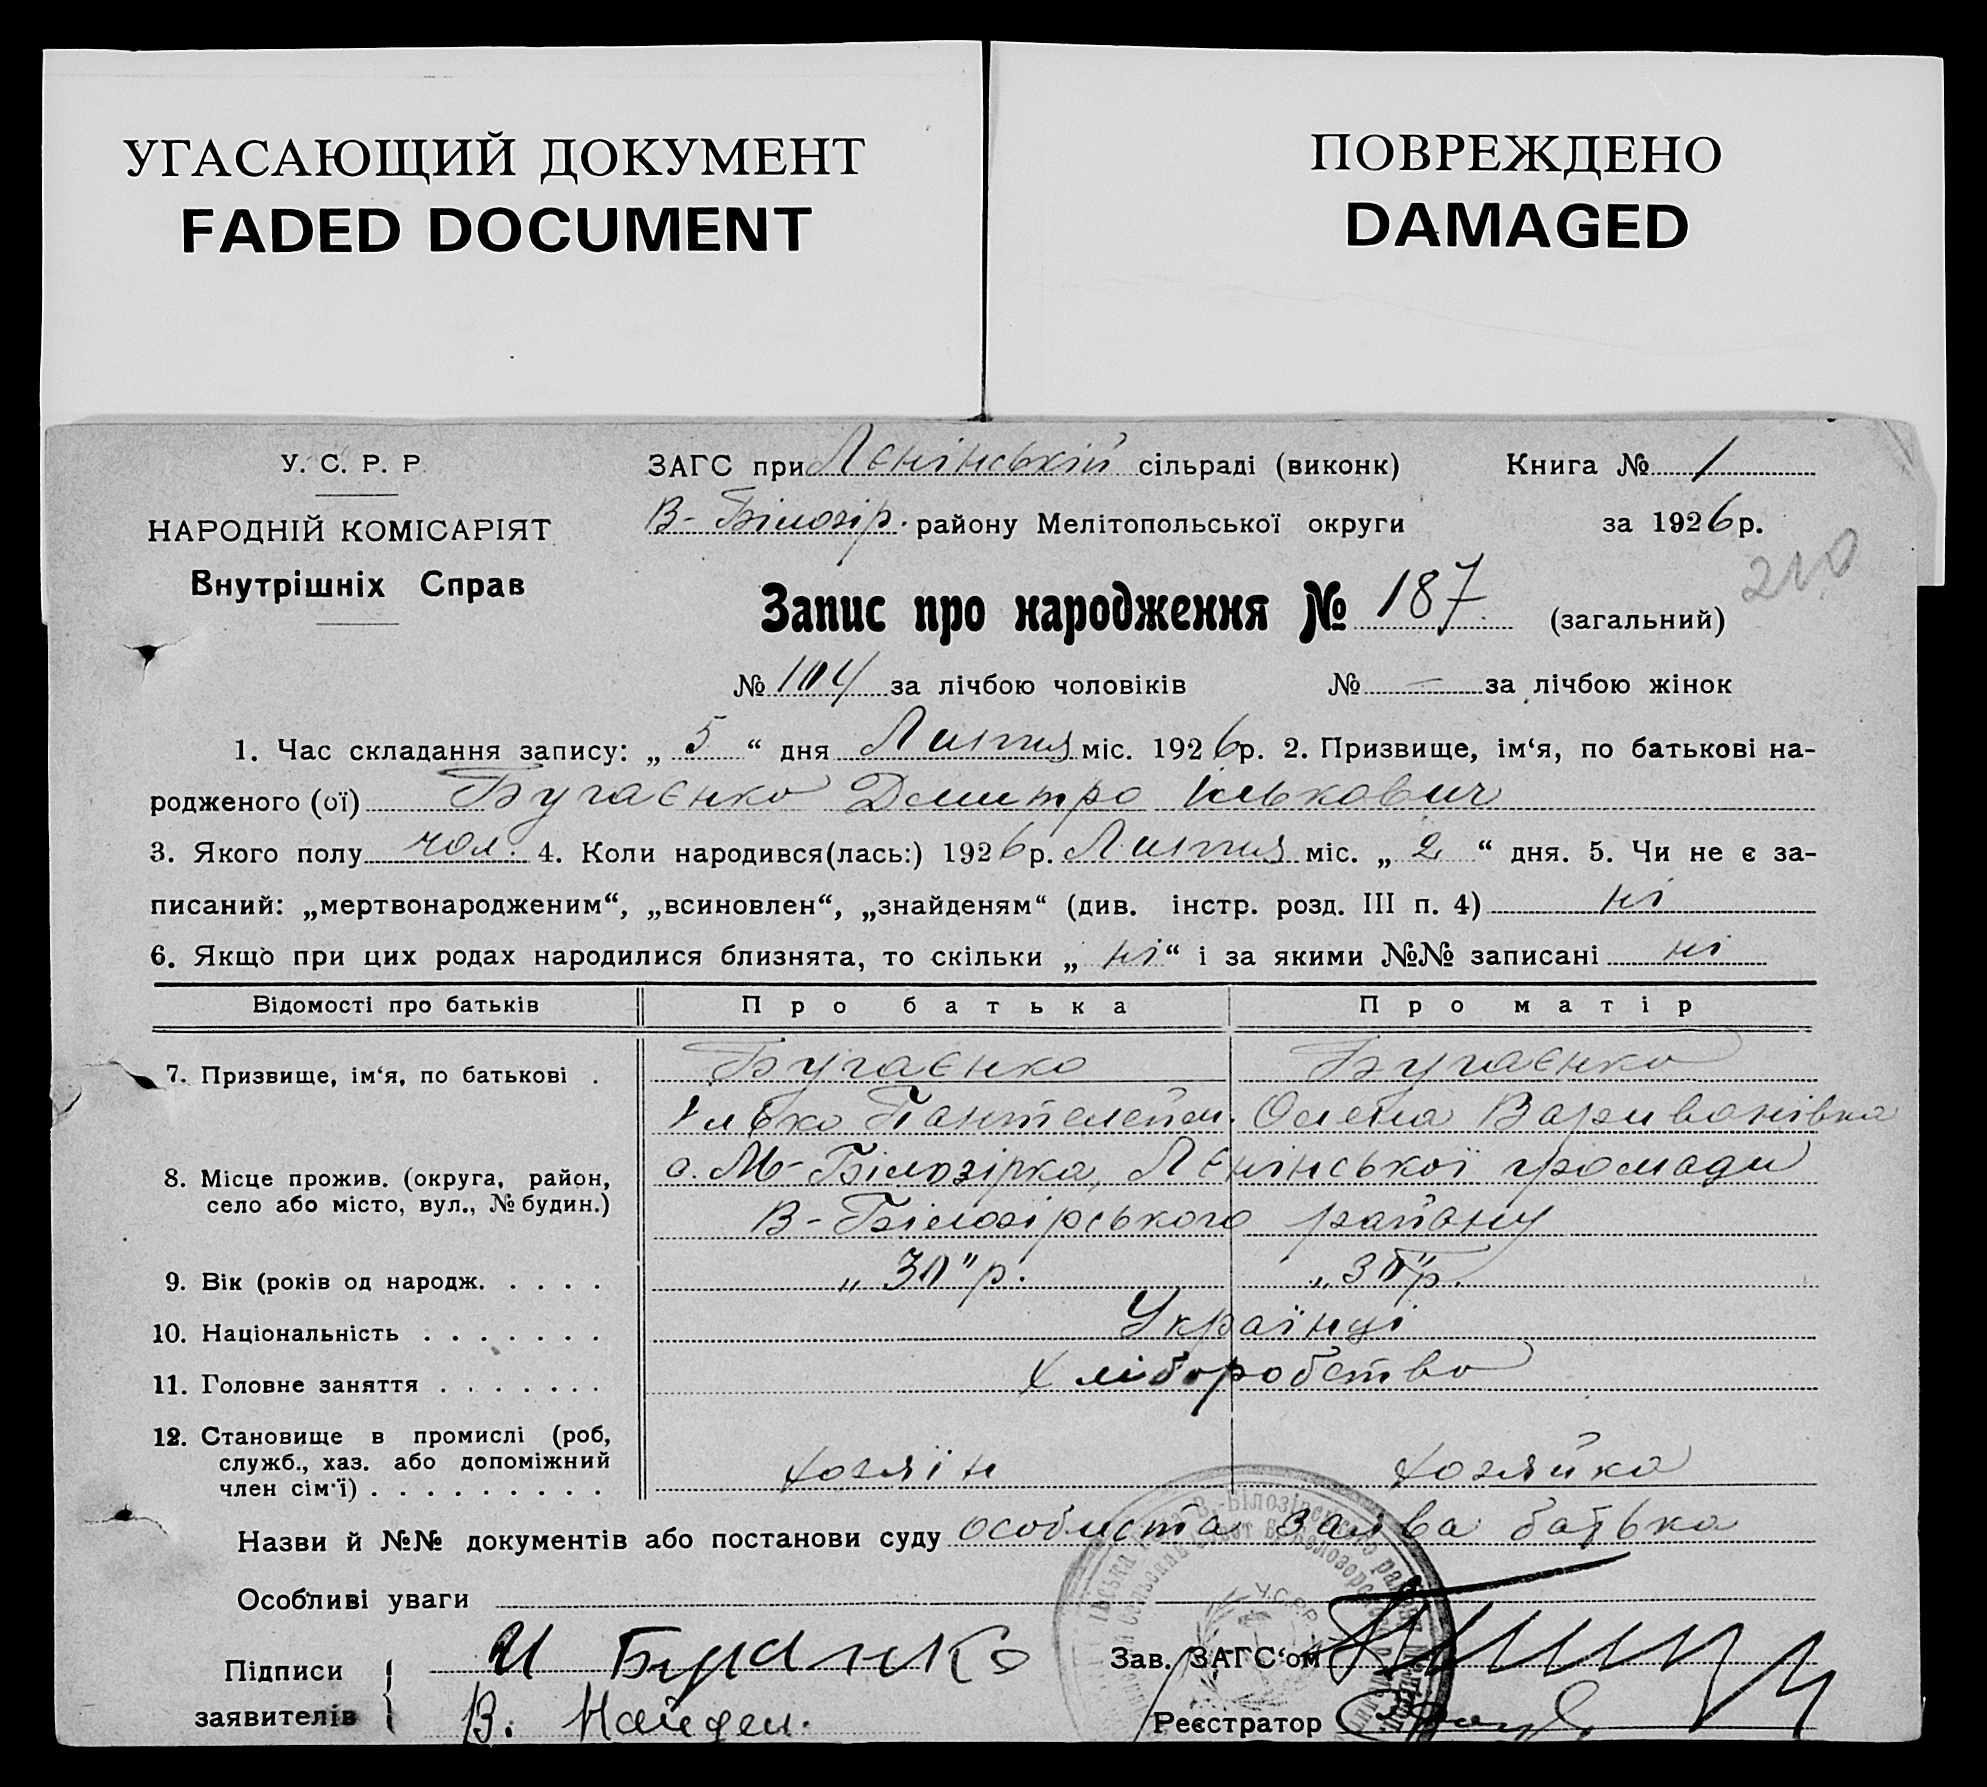 УГАСАЮЩИЙ ДОКУМЕНТ
FADED DOCUMENT
ПОВРЕЖДЕНО
DAMAGED
У. С. Р. Р
НАРОДНІЙ КОМІСАРІЯТ
Внутрішніх Справ
ЗАГС при Лєнінській сільраді (виконк) Книга № 1
В-Білозір. району Мелітопольської округи за 1926 р.
210
Запис про народження № 187 (загальний)
№ 104 за лічбою чоловіків № — за лічбою жінок
1. Час складання запису: „ 5 “ дня Липня міс. 1926 р. 2. Призвище, ім‘я, по батькові на-
родженого (ої) Бугаєнко Дмитро Ількович
3. Якого полу чол. 4. Коли народився(лась:) 1926 р. Липня міс. „ 2 “ дня. 5. Чи не є за-
писаний: „мертвонародженим“, „всиновлен“, „знайденям“ (див. інстр. розд. III п. 4) ні
6. Якщо при цих родах народилися близнята, то скільки „ ні “ і за якими №№ записані ні
Відомості про батьків Про батька Про матір
7. Призвище, ім‘я, по батькові . Бугаєнко Бугаєнко
Ілько Пантелейм. Олена Варивонівна
8. Місце прожив. (округа, район, с. М-Білозірка, Лєнінської громади
село або місто, вул., № будин.) В-Білозірського району
9. Вік (років од народж. . . . . „ 30 " р. „ 30 " р.
10. Національність . . . . . . . Українці
11. Головне заняття . . . . . . . Хліборобство
12. Становище в промислі (роб,
служб., хаз. або допоміжний хозяїн хозяйка
член сім‘ї) . . . . . . . . .
Назви й №№ документів або постанови суду особиста заява батька
Особливі уваги
Підписи И Буганко Зав. ЗАГС‘ом
заявителів В. Найден. Реєстратор
В.-Білозірського
У.С.Р.Р.